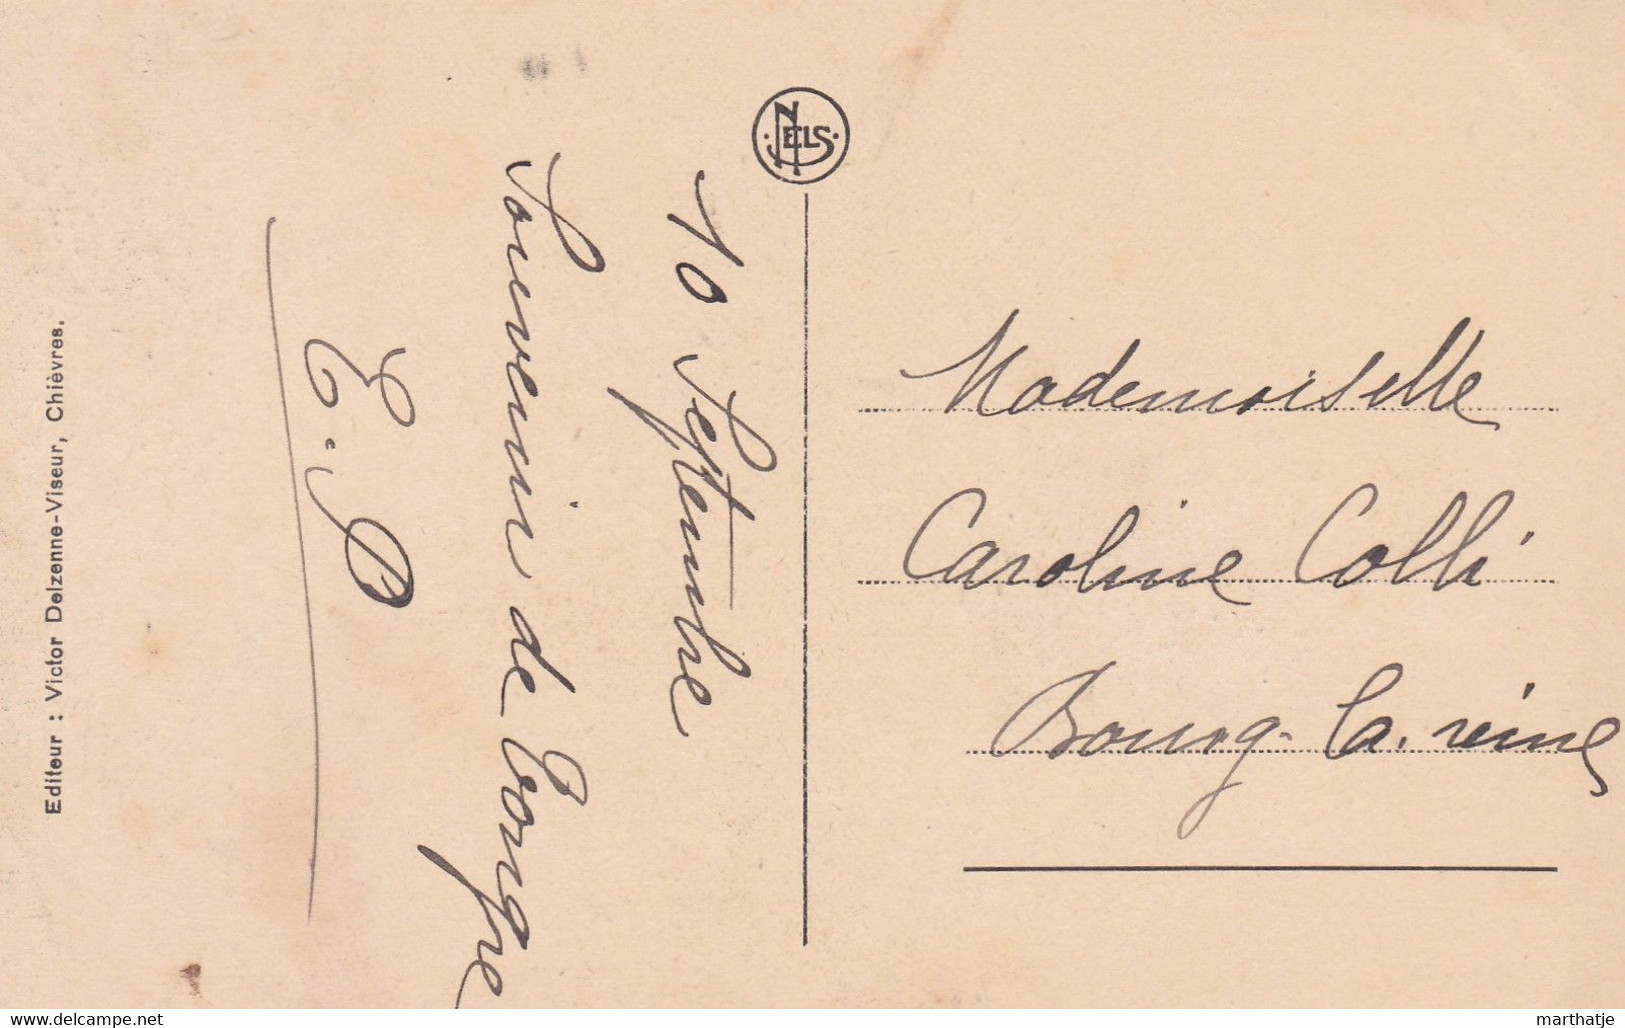 10 Septembre
Souvenir de Tongre
E.P.
Editeur : Victor Delzenne-Viseur, Chièvres.
NELS
Mademoiselle
Caroline Colli
Bourg-la-reine
www.delcampe.net
marthatje